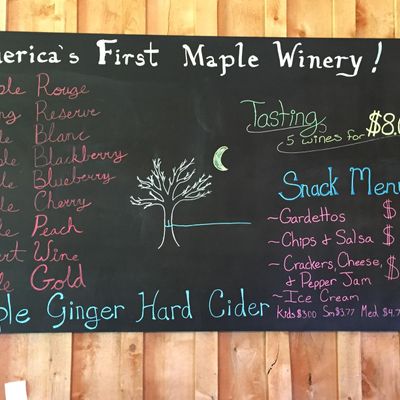 America`s First Maple Winery!
Rouge
Reserve
Blanc
Blackberry
Blueberry
Cherry
Peach
Wine
Gold
Ginger Hard Cider
Tasting
5 wines for $8.0
Snack Menu
~Gardettos $
~Chips & Salsa $
~Crackers, Cheese, $
& Pepper Jam
~Ice Cream
Kids $3.00 Sm $3.77 Med $4.7